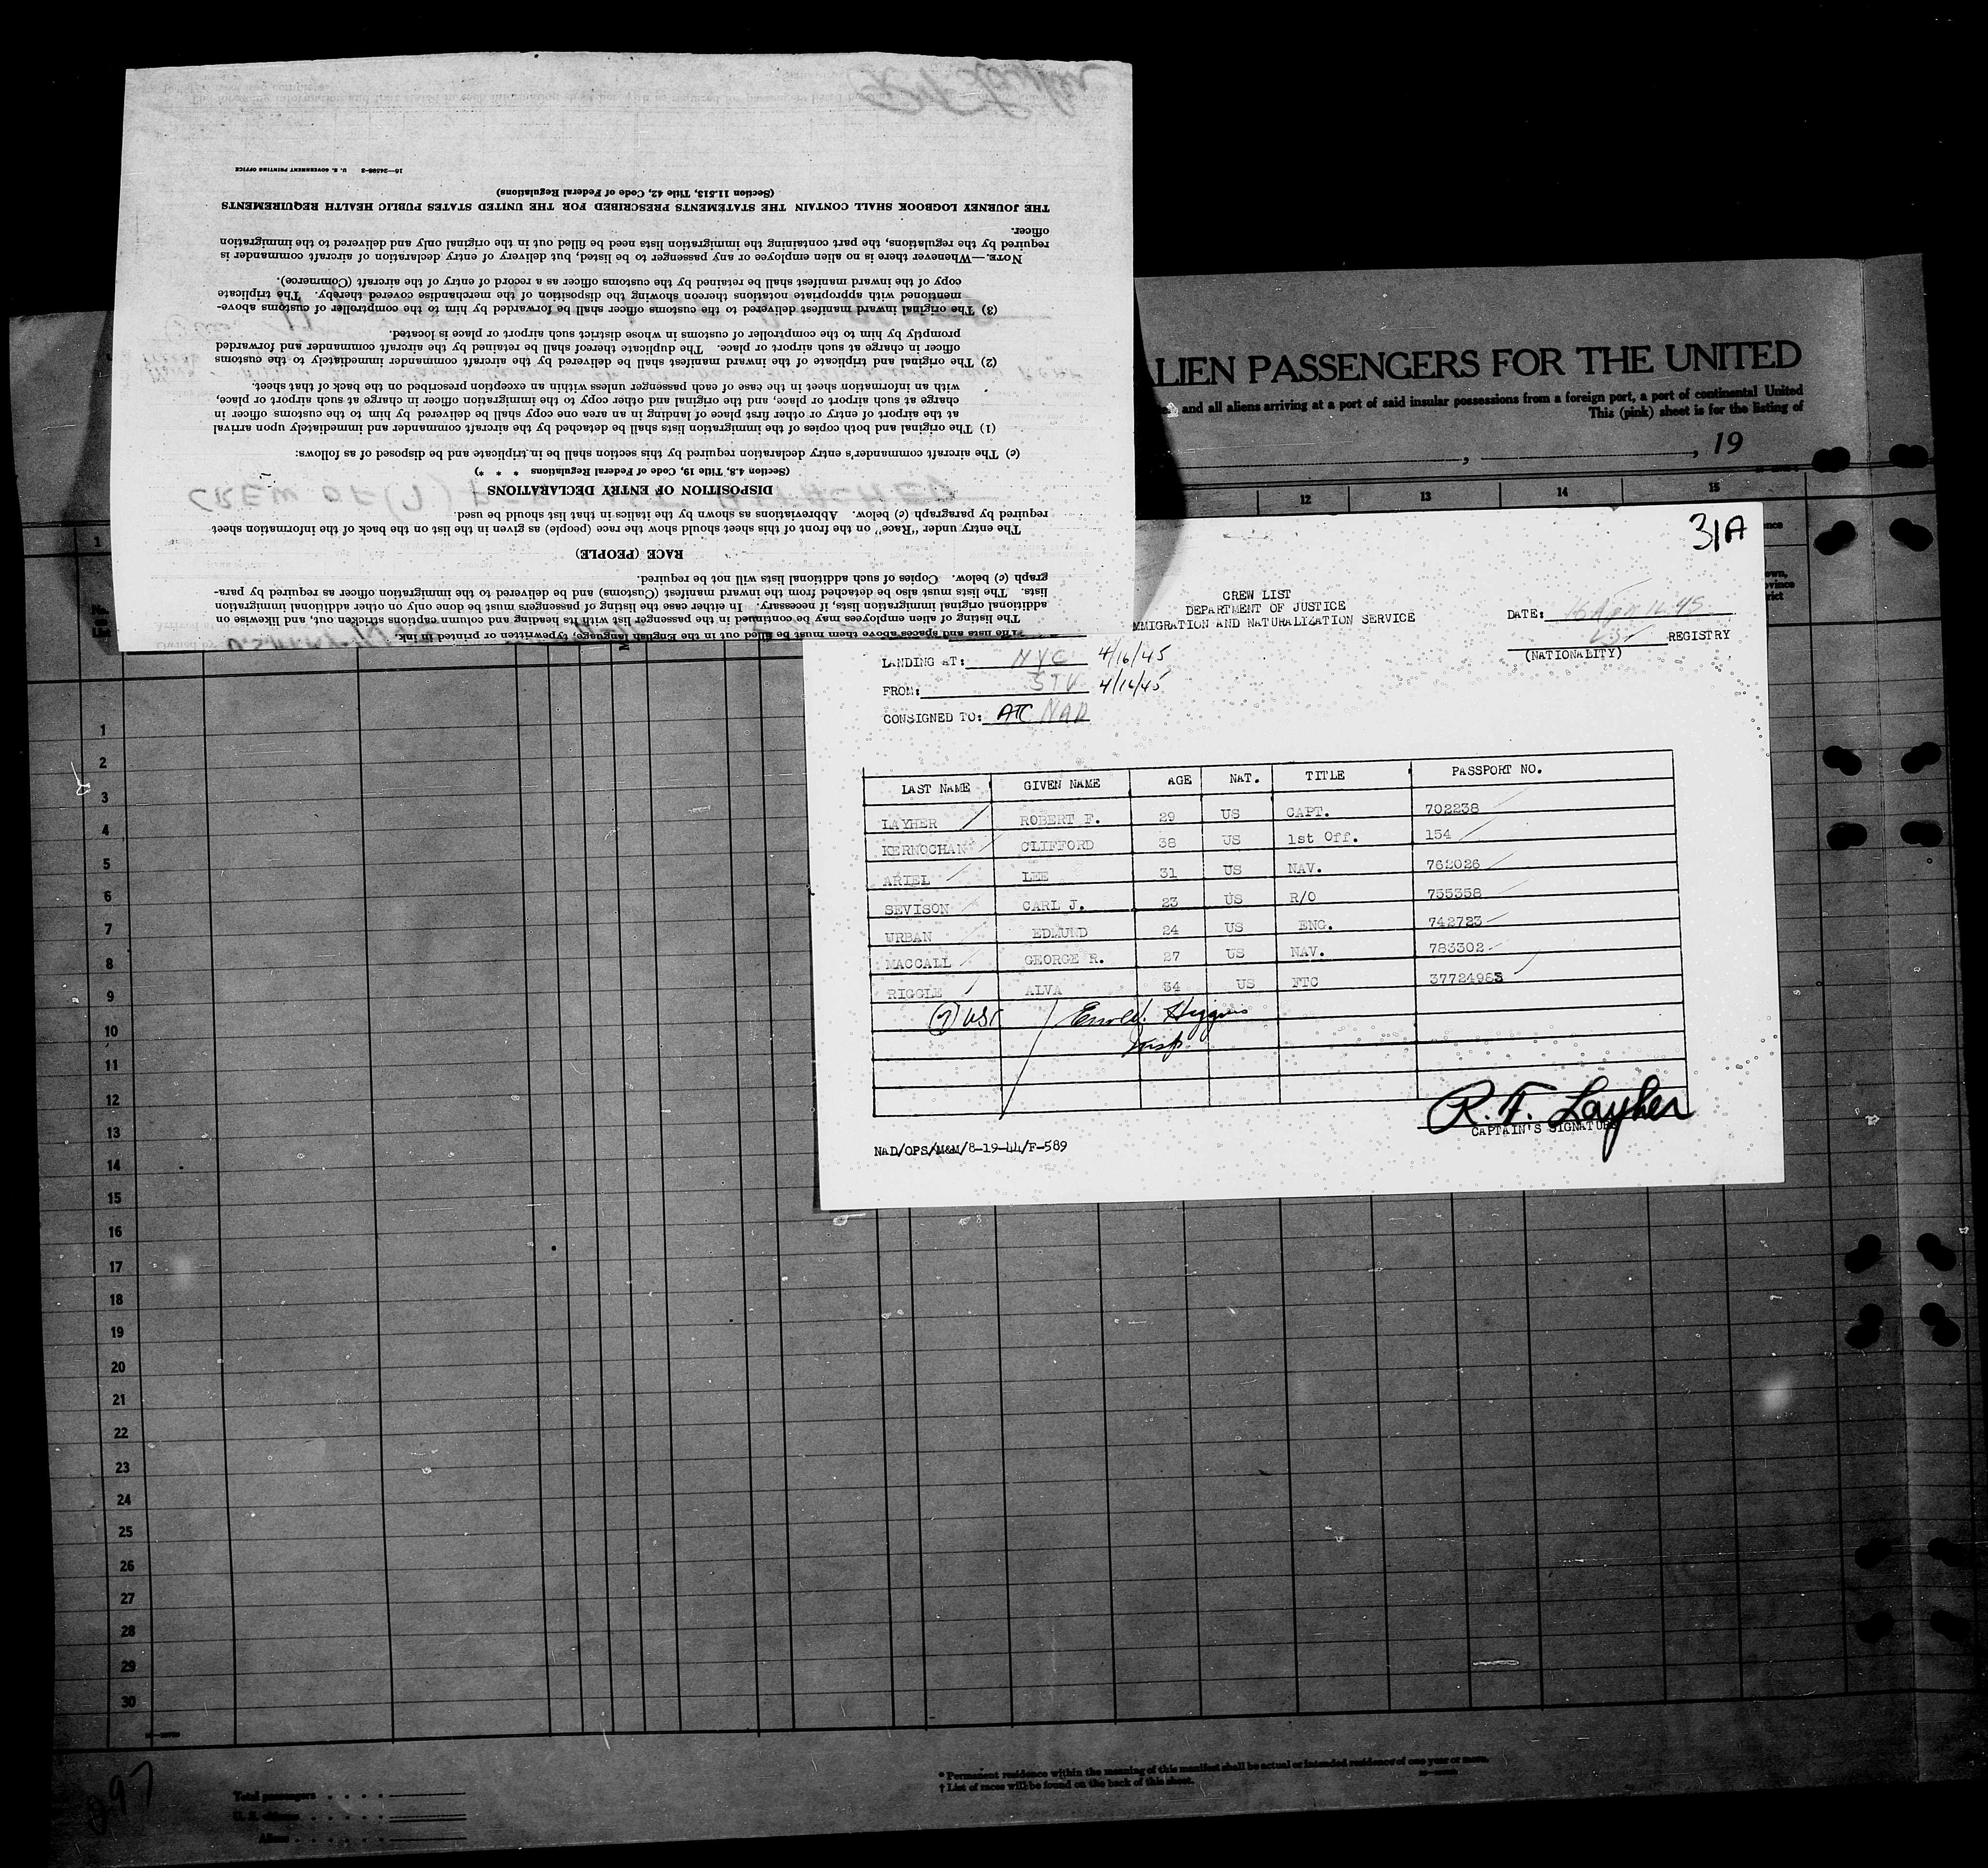 LIEN PASSENGERS FOR THE UNITED
and all aliens arriving at a port of said insular possessions from a foreign port, a port of continental United
This (pink) sheet is for the listing of
, , 19
12 13 14 15
31A
CREW LIST
DEPARTMENT OF JUSTICE
MMIGRATION AND NATURALIZATION SERVICE
DATE: 16 Apr 1945
REGISTRY
(NATIONALITY)
LANDING AT: NYC 4/16/45
FROM: STV 4/16/45
CONSIGNED TO: ATC NAD
LAST NAME GIVEN NAME AGE NAT. TITLE PASSPORT NO.
LAYHER ROBERT F. 29 US CAPT. 702238
KERNOCHAN CLIFFORD 38 US 1st Off. 154
ARIEL LEE 31 US NAV. 762026
SEVISON CARL J. 23 US R/O 755358
URBAN EDMUND 24 US ENG. 742723
MACCALL GEORGE R. 27 US NAV. 783302
RIGGLE ALVA 34 US FTC 37724983
(7) USC Higgins
Insp.
R. F. Layher
CAPTAIN'S SIGNATURE
NAD/OPS/M&M/8-19-44/F-589
The lists and spaces above them must be filled out in the English language, typewritten or printed in ink.
The listing of alien employees may be continued in the passenger list with its heading and column captions stricken out, and likewise on
additional original immigration lists, if necessary. In either case the listing of passengers must be done only on other additional immigration
lists. The lists must also be detached from the inward manifest (Customs) and be delivered to the immigration officer as required by para-
graph (c) below. Copies of such additional lists will not be required.
RACE (PEOPLE)
The entry under "Race" on the front of this sheet should show the race (people) as given in the list on the back of the information sheet
required by paragraph (c) below. Abbreviations as shown by the italics in that list should be used.
DISPOSITION OF ENTRY DECLARATIONS
(Section 4.8, Title 19, Code of Federal Regulations * * *)
(c) The aircraft commander's entry declaration required by this section shall be in triplicate and be disposed of as follows:
(1) The original and both copies of the immigration lists shall be detached by the aircraft commander and immediately upon arrival
at the airport of entry or other first place of landing in an area one copy shall be delivered by him to the customs officer in
charge at such airport or place, and the original and other copy to the immigration officer in charge at such airport or place,
with an information sheet in the case of each passenger unless within an exception prescribed on the back of that sheet.
(2) The original and triplicate of the inward manifest shall be delivered by the aircraft commander immediately to the customs
officer in charge at such airport or place. The duplicate thereof shall be retained by the aircraft commander and forwarded
promptly by him to the comptroller of customs in whose district such airport or place is located.
(3) The original inward manifest delivered to the customs officer shall be forwarded by him to the comptroller of customs above-
mentioned with appropriate notations thereon showing the disposition of the merchandise covered thereby. The triplicate
copy of the inward manifest shall be retained by the customs officer as a record of entry of the aircraft (Commerce).
NOTE.—Whenever there is no alien employee or any passenger to be listed, but delivery of entry declaration of aircraft commander is
required by the regulations, the part containing the immigration lists need be filled out in the original only and delivered to the immigration
officer.
THE JOURNEY LOGBOOK SHALL CONTAIN THE STATEMENTS PRESCRIBED FOR THE UNITED STATES PUBLIC HEALTH REQUIREMENTS
(Section 11.513, Title 42, Code of Federal Regulations)
16—24598-3 U. S. GOVERNMENT PRINTING OFFICE
CREW OF (7) ATTACHED
1
1
2
3
4
5
6
7
8
9
10
11
12
13
14
15
16
17
18
19
20
21
22
23
24
25
26
27
28
29
30
* Permanent residence within the meaning of this manifest shall be actual or intended residence of one year or more.
† List of races will be found on the back of this sheet.
Total passengers
U. S. citizens
Aliens